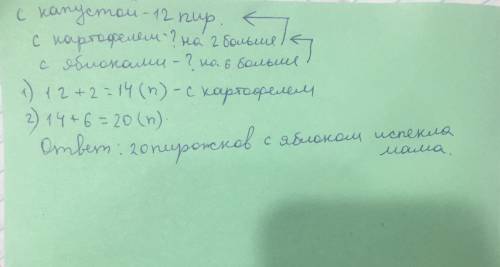 с капустой - 12 пир.
с картофелем - ? на 2 больше
с яблоками - ? на 6 больше
1) 12 + 2 = 14 (п) - с картофелем
2) 14 + 6 = 20 (п).
Ответ: 20 пирожков с яблоком испекла
мама.